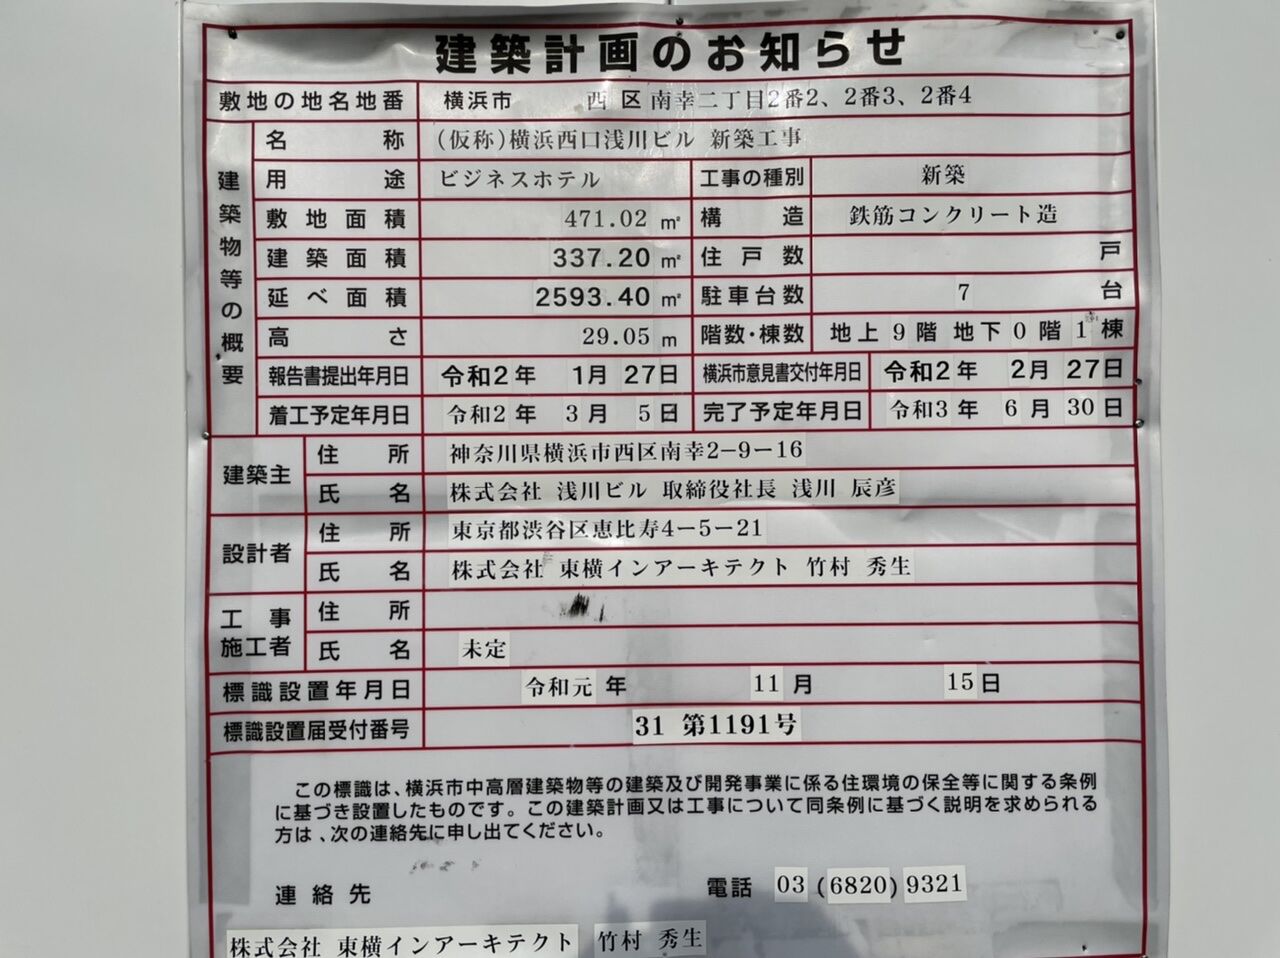 建築計画のお知らせ
敷地の地名地番 横浜市 西区南幸二丁目2番2、2番3、2番4
建築物等の概要
名称 (仮称)横浜西口浅川ビル 新築工事
用途 ビジネスホテル 工事の種別 新築
敷地面積 471.02 ㎡ 構造 鉄筋コンクリート造
建築面積 337.20 ㎡ 住戸数 戸
延べ面積 2593.40 ㎡ 駐車台数 7 台
高さ 29.05 m 階数・棟数 地上 9 階 地下 0 階 1 棟
報告書提出年月日 令和2年 1月 27日 横浜市意見書交付年月日 令和2年 2月 27日
着工予定年月日 令和2年 3月 5日 完了予定年月日 令和3年 6月 30日
建築主 住所 神奈川県横浜市西区南幸2-9-16
氏名 株式会社 浅川ビル 取締役社長 浅川 辰彦
設計者 住所 東京都渋谷区恵比寿4-5-21
氏名 株式会社 東横インアーキテクト 竹村 秀生
工事施工者 住所
氏名 未定
標識設置年月日 令和元年 11月 15日
標識設置届受付番号 31 第1191号
この標識は、横浜市中高層建築物等の建築及び開発事業に係る住環境の保全等に関する条例
に基づき設置したものです。この建築計画又は工事について同条例に基づく説明を求められる
方は、次の連絡先に申し出てください。
連絡先 電話 03 (6820) 9321
株式会社 東横インアーキテクト 竹村 秀生